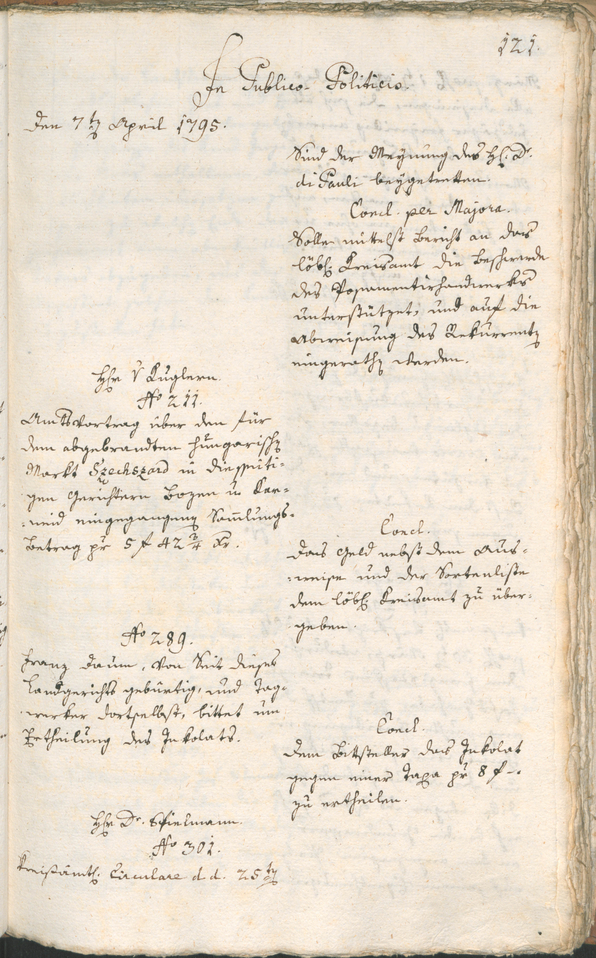 121.
In Publico-Politicis.
Den 7ten April 1795.
Sind der Meynung des H. Dr.
di Pauli beygetretten.
Concl. per Majora.
Solle mittelst Bericht an das
löbl. Kreisamt die Beschwerde
des Posamentirhandwerks
unterstützet, und auf die
Abweisung des Rekurrenten
eingerathen werden.
Hr. v Kuglern.
No 211.
Amtsvortrag über den für
den abgebrandten hungarischen
Markt Szechszard in diesseiti-
gen Gerichtern Bozen u. Kar-
neid eingegangenen Sammlungs-
betrag pr 5 f 42 2/4 Kr.
Concl.
Das Geld nebst dem Aus-
weise und der Sortenliste
dem löbl. Kreisamt zu über-
geben.
No 289.
Franz Daum, von seit dieses
Landgerichts gebürtig, und Tag-
werker dortselbst, bittet um
Ertheilung des Inkolats.
Concl.
Dem Bittsteller das Inkolat
gegen einer Taxa pr 8 f –.
zu ertheilen.
Hr. Dr. Spielmann.
No 301.
Kreisämtl. Circulare d. d. 25ten